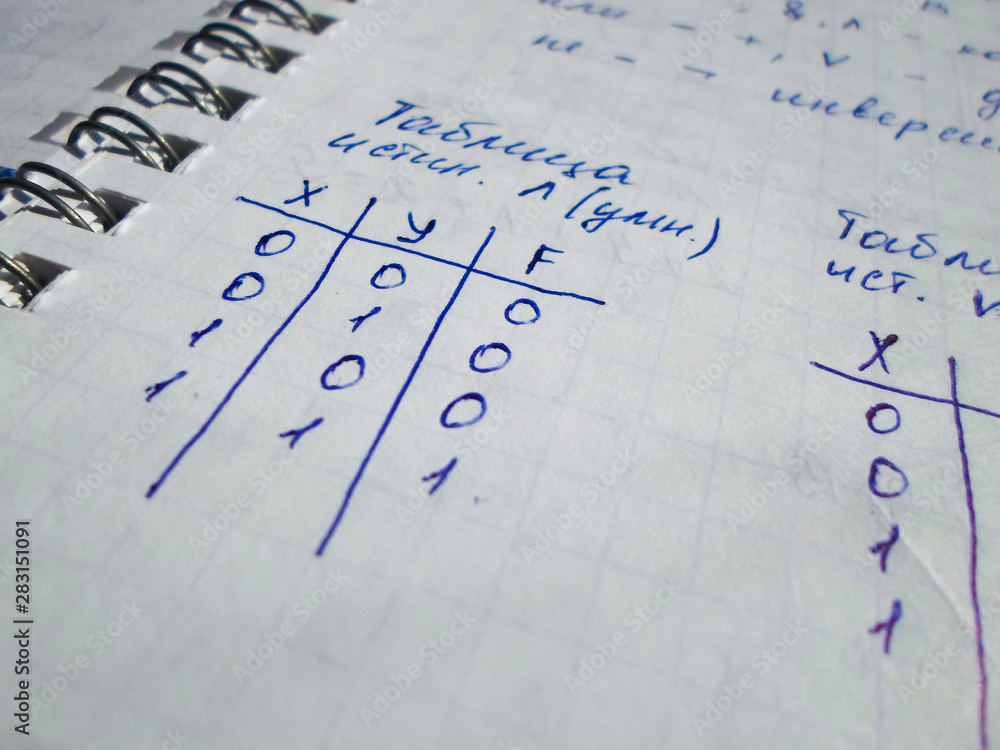 или - +, v -
не - ¬ инверси
Таблица
истин. ʌ (умн.)
X У F
0 0 0
0 1 0
1 0 0
1 1 1.
Табли
ист. v
X
0
0
1
1
Adobe Stock | #283151091